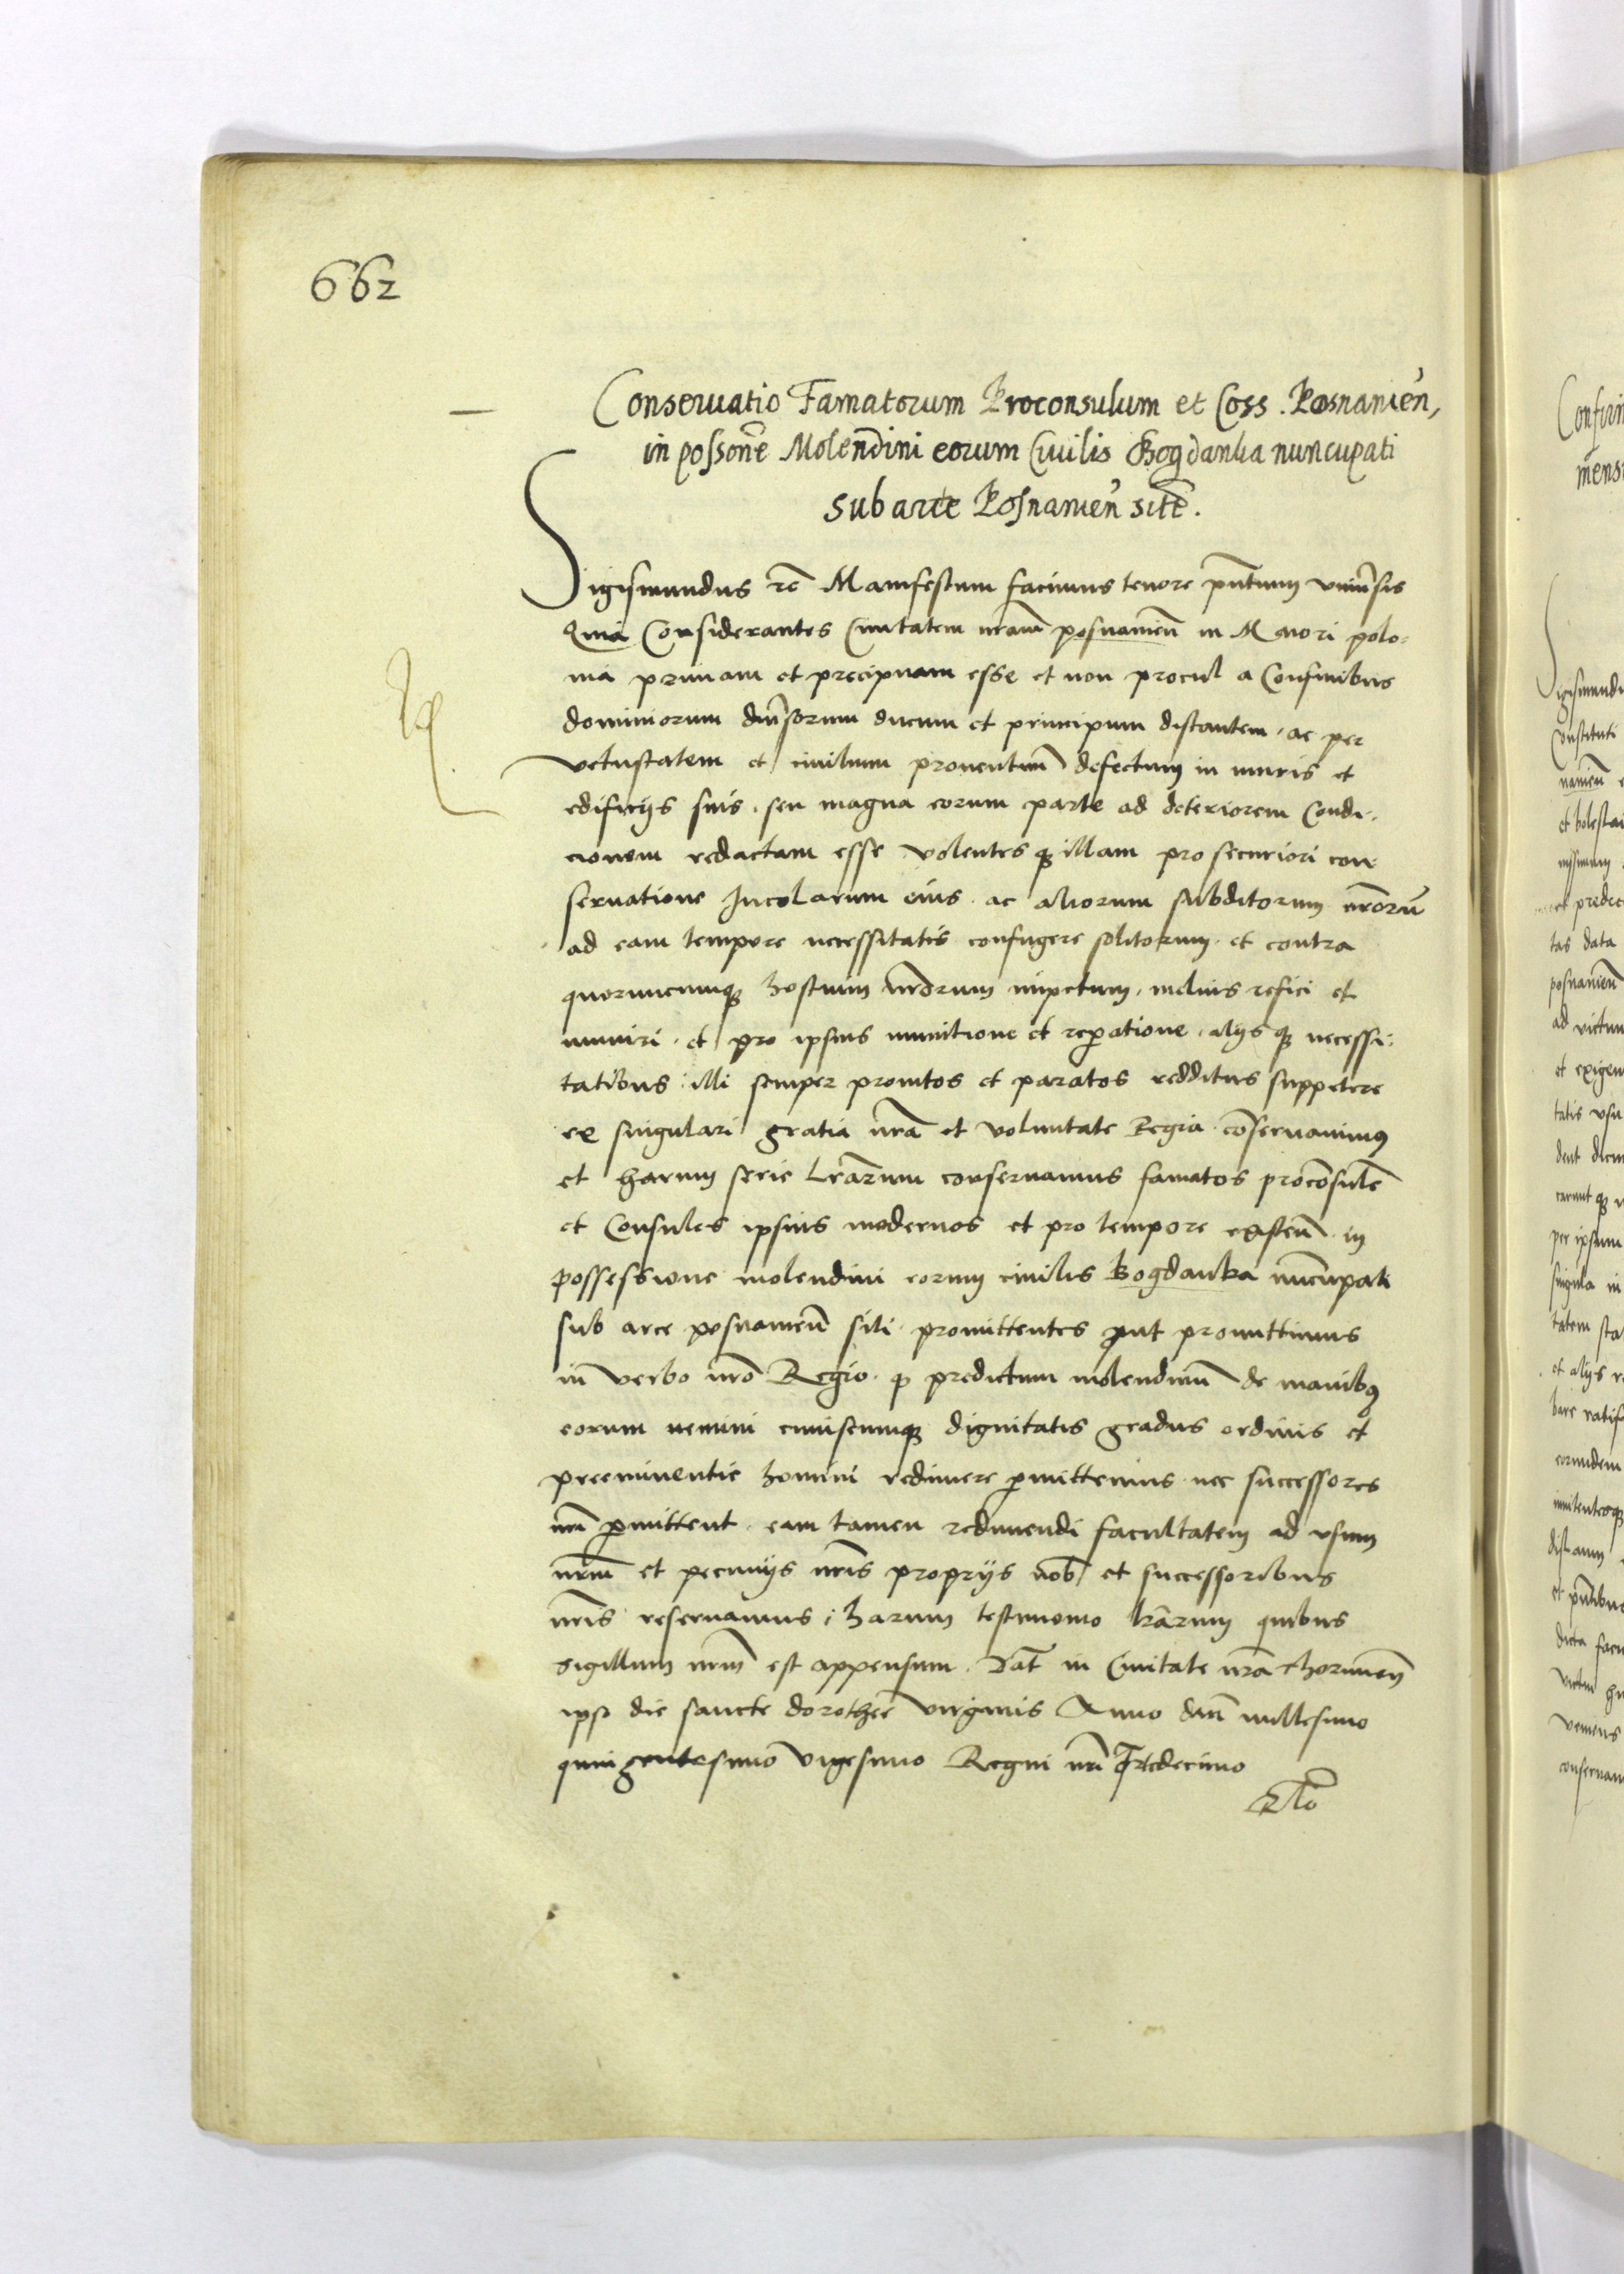 662
Conseruatio Famatorum Proconsulum et Coss. Posnanien̄,
in possone Molendini eorum Ciuilis Bogdanka nuncupati
sub arce Posnanien̄ site.
Sigismundus rc̄ Manifestum facimus tenore pn̄tium vniu̅sis
Quia Considerantes Ciuitatem nrām posnanien̄ in Maiori polo-
nia primam et precipuam esse et non procul a Confinibus
dominiorum diu̅sorum ducum et principum distantem, ac per
vetustatem et ciuilium prouentuum defectum in muris et
edificijs suis, seu magna eorum parte ad deteriorem Condi-
cionem redactam esse volentesq illam pro securiori con-
seruatione Incolarum eius ac aliorum subditorum nr̄orū
ad eam tempore necessitatis confugere solitorum et contra
quorumcunq hostium nr̄orum impetum, melius refici et
muniri, et pro ipsius munitione et repatione, alijsq necessi-
tatibus illi semper promtos et paratos redditus suppetere
ex singulari gratia nrā et voluntate Regia cōseruauimus
et harum serie Lrārum conseruamus famatos procōsulē
et Consules ipsius modernos et pro tempore existen̄ in
possessione molendini eorum ciuilis Bogdanka nūcupati
sub arce posnanien̄ siti promittentes put promittimus
in verbo nrō Regio q predictum molendinū de manibus
eorum nemini cuiuscumq dignitatis gradus ordinis et
preeminentie homini redimere pmittemus nec successores
nrī pmittent, eam tamen redimendi facultatem ad vsum
nrm̄ et pecunijs nrīs proprijs nob et successoribus
nrīs reseruamus, harum testimonio lrārum quibus
sigillum nrm̄ est appensum. Dat̄ in Ciuitate nrā thorunien̄
ipso die sancte dorothee virginis Anno dnī millesimo
quingentesimo vigesimo Regni nrī Tredecimo
Confirm
mensu